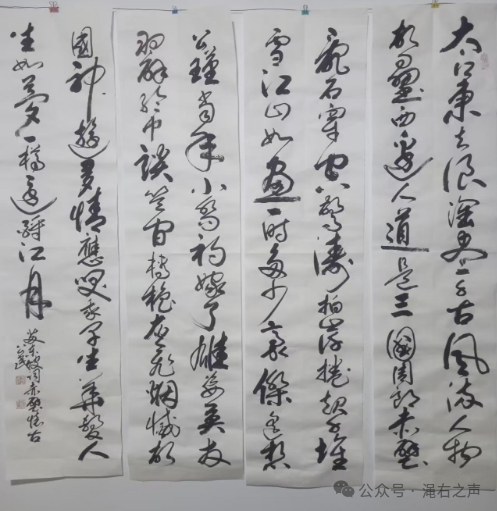 大江東去浪淘尽千古風流人物
故壘西邊人道是三國周郎赤壁
亂石穿空驚濤拍岸捲起千堆
雪江山如畫一時多少豪傑遙想
公瑾當年小喬初嫁了雄姿英发
羽扇綸巾談笑間檣櫓灰飛烟滅故
國神遊多情應笑我早生華髮人
生如夢一樽還酹江月
蘇東坡詞赤壁懷古
公众号·渑右之声